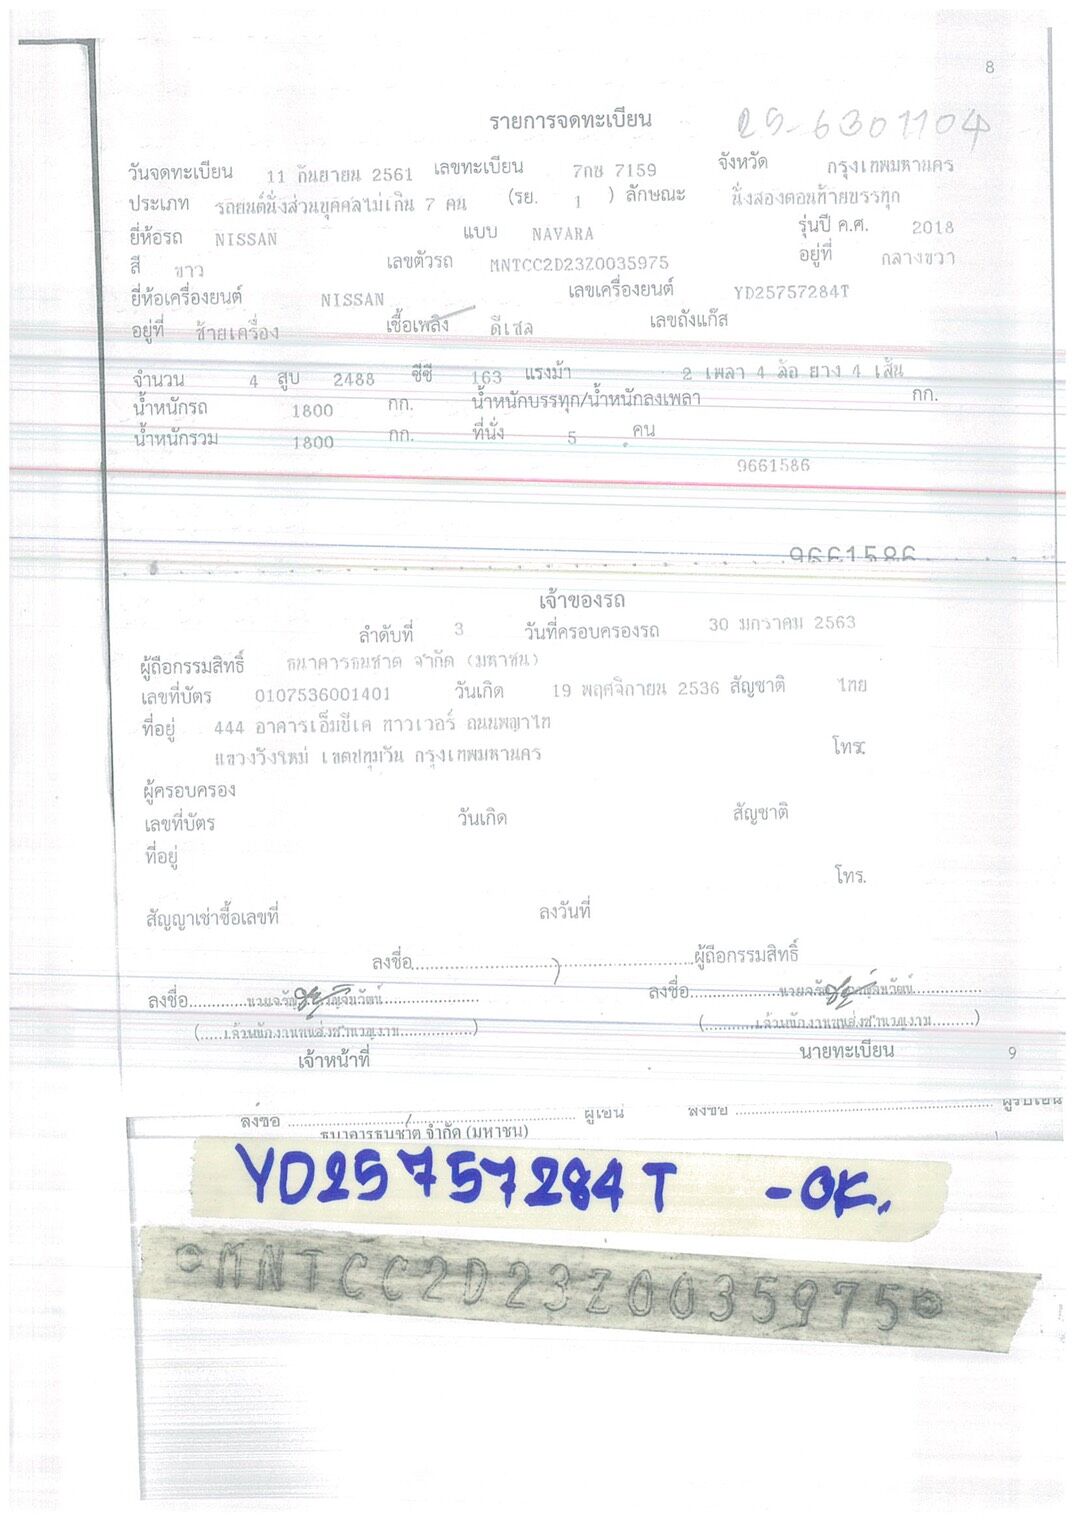 8
รายการจดทะเบียน
25-6301104
วันจดทะเบียน 11 กันยายน 2561 เลขทะเบียน 7กช 7159 จังหวัด กรุงเทพมหานคร
ประเภท รถยนต์นั่งส่วนบุคคลไม่เกิน 7 คน (รย. 1 ) ลักษณะ นั่งสองตอนท้ายบรรทุก
ยี่ห้อรถ NISSAN แบบ NAVARA รุ่นปี ค.ศ. 2018
สี ขาว เลขตัวรถ MNTCC2D23Z0035975 อยู่ที่ กลางขวา
ยี่ห้อเครื่องยนต์ NISSAN เลขเครื่องยนต์ YD25757284T
อยู่ที่ ซ้ายเครื่อง เชื้อเพลิง ดีเซล เลขถังแก๊ส
จำนวน 4 สูบ 2488 ซีซี 163 แรงม้า 2 เพลา 4 ล้อ ยาง 4 เส้น
น้ำหนักรถ 1800 กก. น้ำหนักบรรทุก/น้ำหนักลงเพลา กก.
น้ำหนักรวม 1800 กก. ที่นั่ง 5 คน
9661586
9661586
เจ้าของรถ
ลำดับที่ 3 วันที่ครอบครองรถ 30 มกราคม 2563
ผู้ถือกรรมสิทธิ์ ธนาคารธนชาต จำกัด (มหาชน)
เลขที่บัตร 0107536001401 วันเกิด 19 พฤศจิกายน 2536 สัญชาติ ไทย
ที่อยู่ 444 อาคารเอ็มบีเค ทาวเวอร์ ถนนพญาไท
แขวงวังใหม่ เขตปทุมวัน กรุงเทพมหานคร โทร.
ผู้ครอบครอง
เลขที่บัตร วันเกิด สัญชาติ
ที่อยู่
โทร.
สัญญาเช่าซื้อเลขที่ ลงวันที่
ลงชื่อ ผู้ถือกรรมสิทธิ์
ลงชื่อ ลงชื่อ
(.....เจ้าพนักงานขนส่งชำนาญงาน.....) (.....เจ้าพนักงานขนส่งชำนาญงาน.....)
เจ้าหน้าที่ นายทะเบียน 9
ลงชื่อ ผู้โอน ลงชื่อ ผู้รับโอน
ธนาคารธนชาต จำกัด (มหาชน)
YD25757284T -OK.
MNTCC2D23Z0035975